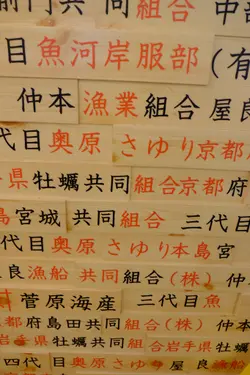 前門共同組合 中部
目魚河岸服部 (有
仲本漁業組合屋良
代目奥原さゆり京都
県牡蠣共同組合京都府
島宮城共同組合 三代目
代目奥原さゆり本島宮
良漁船共同組合(株)仲
菅原海産 三代目魚
都府島田共同組合(株)仲本
岩手県牡蠣共同組合岩手県牡
四代目奥原さゆり 屋良